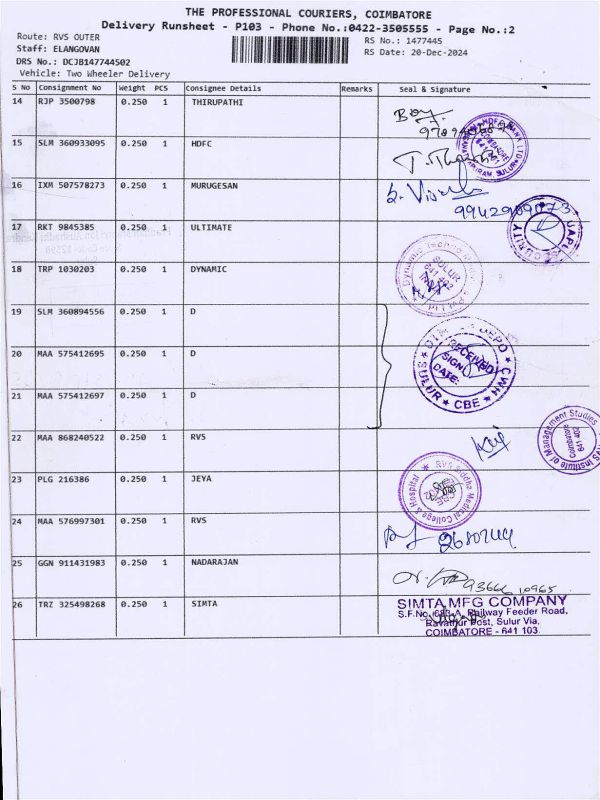 THE PROFESSIONAL COURIERS, COIMBATORE
Delivery Runsheet - P103 - Phone No.:0422-3505555 - Page No.:2
Route: RVS OUTER
RS No.: 1477445
Staff: ELANGOVAN
RS Date: 20-Dec-2024
DRS No.: DCJB147744502
Vehicle: Two Wheeler Delivery
S No Consignment No Weight PCS Consignee Details Remarks Seal & Signature
14 RJP 3500798 0.250 1 THIRUPATHI
15 SLM 360933095 0.250 1 HDFC
16 IXM 507578273 0.250 1 MURUGESAN
17 RKT 9845385 0.250 1 ULTIMATE
18 TRP 1030203 0.250 1 DYNAMIC
SULUR
641 402
19 SLM 360894556 0.250 1 D
20 MAA 575412695 0.250 1 D
RECEIVED
SIGN
DATE:
SULUR * CBE * CWH
21 MAA 575412697 0.250 1 D
22 MAA 868240522 0.250 1 RVS
RVS Institute of Management Studies
Coimbatore
641 402
23 PLG 216386 0.250 1 JEYA
RVS Siddha Medical College & Hospital
24 MAA 576997301 0.250 1 RVS
25 GGN 911431983 0.250 1 NADARAJAN
26 TRZ 325498268 0.250 1 SIMTA
SIMTA MFG COMPANY
Railway Feeder Road,
Post, Sulur Via,
COIMBATORE - 641 103.